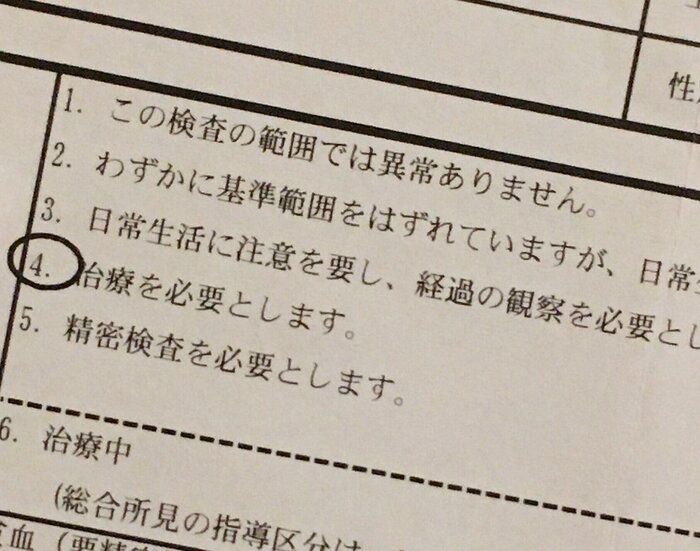 性
1. この検査の範囲では異常ありません。
2. わずかに基準範囲をはずれていますが、日常
3. 日常生活に注意を要し、経過の観察を必要とし
4. 治療を必要とします。
5. 精密検査を必要とします。
6. 治療中
(総合所見の指導区分は
血(要精